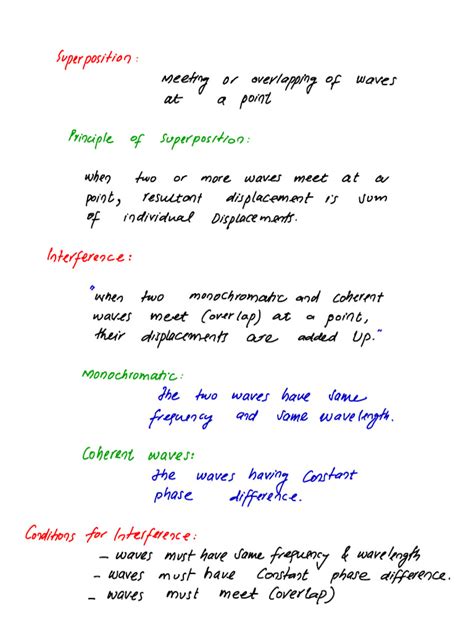 Superposition:
Meeting or overlapping of waves
at a point
Principle of Superposition:
when two or more waves meet at a
point, resultant displacement is sum
of individual Displacements.
Interference:
"when two monochromatic and coherent
waves meet (overlap) at a point,
their displacements are added up."
Monochromatic:
The two waves have same
frequency and same wavelength.
Coherent waves:
The waves having constant
phase difference.
Conditions for Interference:
- waves must have same frequency & wavelength
- waves must have constant phase difference.
- waves must meet (overlap)